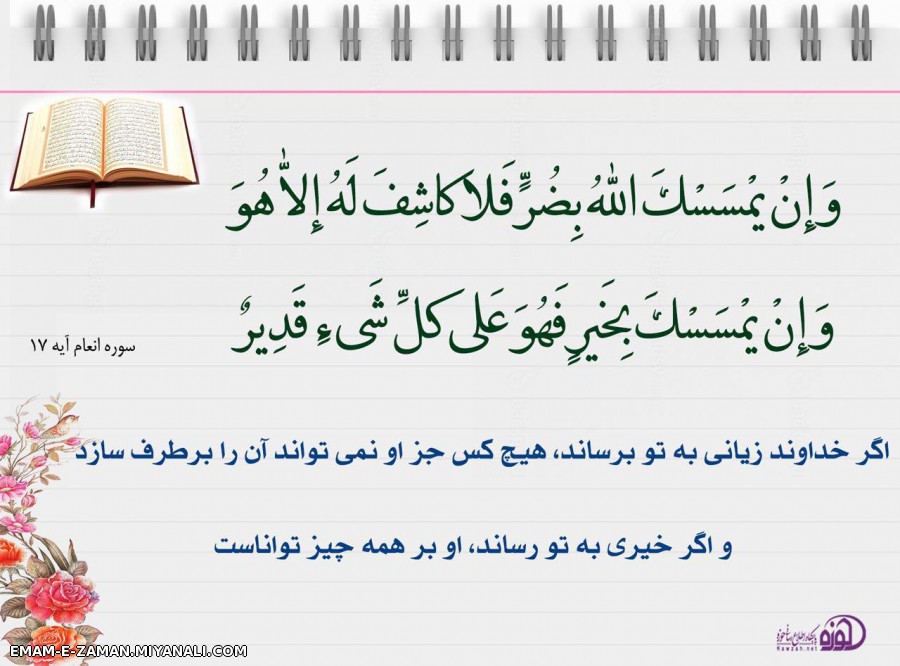 وَإِنْ يَمْسَسْكَ اللهُ بِضُرٍّ فَلَا كَاشِفَ لَهُ إِلاَّ هُوَ
وَإِنْ يَمْسَسْكَ بِخَيرٍ فَهُوَ عَلى كلِّ شَىءِ قَدِيرٌ
سوره انعام آیه ۱۷
اگر خداوند زیانی به تو برساند، هیچ کس جز او نمی تواند آن را برطرف سازد
و اگر خیری به تو رساند، او بر همه چیز تواناست
حوزه
پایگاه اطلاع رسانی حوزه
Hawzah.net
EMAM-E-ZAMAN.MIYANALI.COM